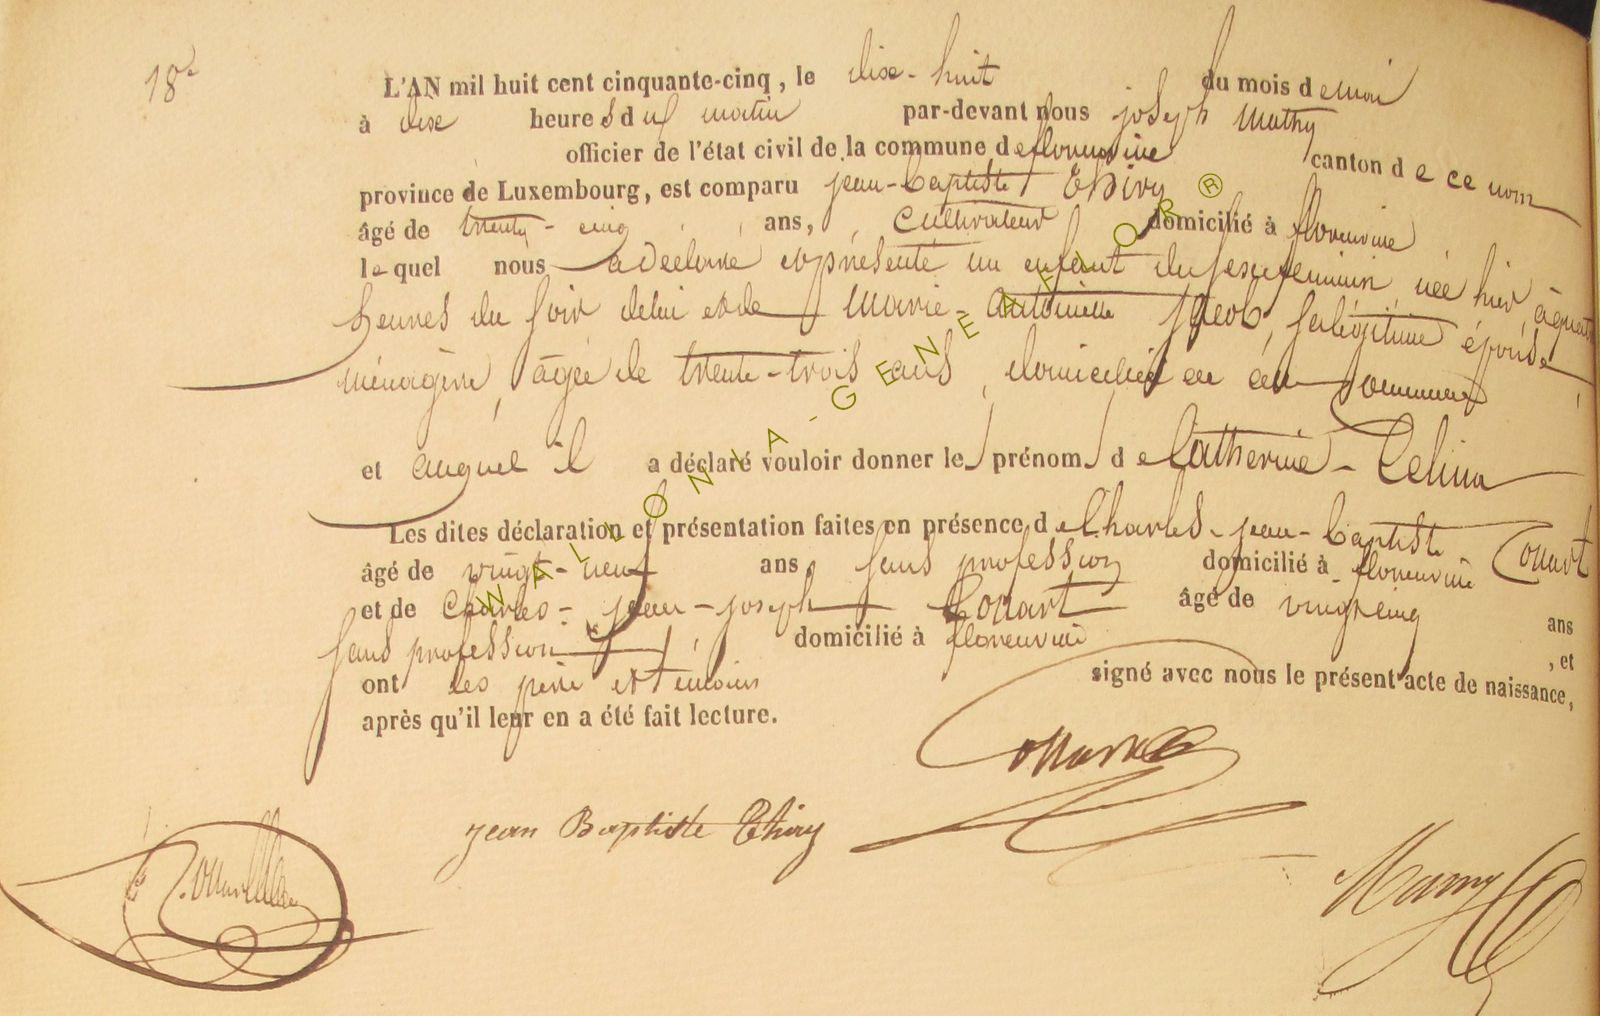 18e
L'AN mil huit cent cinquante-cinq, le dixe-huit du mois de mai
à dixe heures du matin par-devant nous joseph Mathy
officier de l'état civil de la commune de florenville canton de ce nom
province de Luxembourg, est comparu jean-baptiste Thiry
âgé de trente-cinq ans, cultivateur domicilié à florenville
lequel nous a déclaré et présenté un enfant du sexe féminin née hier à quatre
heures du soir de lui et de Marie-Antoinette Jacob, sa légitime épouse,
ménagère, âgée de trente-trois ans, domiciliée en cette commune
et auquel il a déclaré vouloir donner le prénom de Catherine-Zelina
Les dites déclaration et présentation faites en présence de Charles-jean-baptiste Conart
âgé de vingt-neuf ans, sans profession domicilié à florenville
et de Charles-jean-joseph Conart âgé de vingt cinq ans
sans profession, domicilié à florenville, et
ont les père et témoins signé avec nous le présent acte de naissance,
après qu'il leur en a été fait lecture.
jean Baptiste Thiry
WALLONIA-GENEANELOR ®